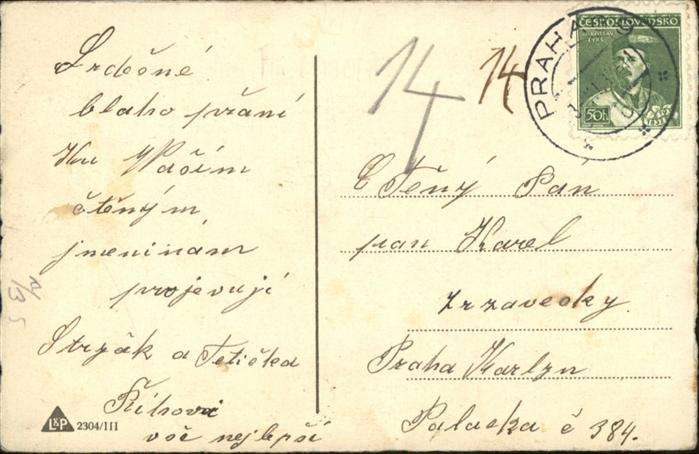 Srdečné
blaho přání
Ku Vaším
čtěným
jmeninám
projevují
Strýčk a Tetička
Říhovi
vše nejlepší
L&P 2304/III
14 14
PRAHA
ČESKOSLOVENSKO
50h
Ctěný Pan
pan Karel
Zrzavecky
Praha Karlyn
Palacka č 384.